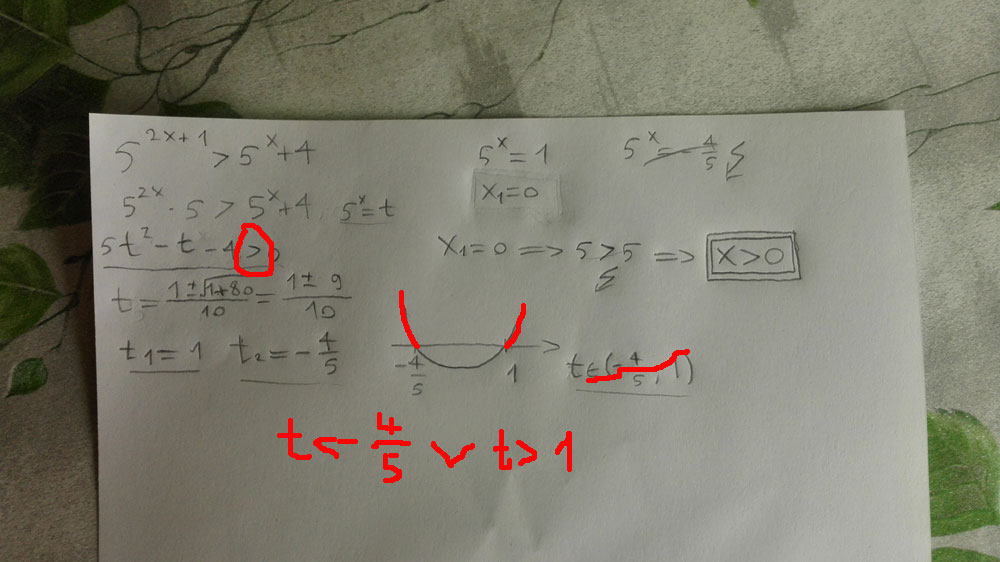 5^{2x+1} > 5^x + 4
5^{2x} · 5 > 5^x + 4, 5^x = t
5t² - t - 4 > 0
t = \frac{1 ± √(1+80)}{10} = \frac{1 ± 9}{10}
t₁ = 1 t₂ = -\frac{4}{5}
5^x = 1 5^x = -\frac{4}{5}
x₁ = 0
x₁ = 0 => 5 > 5 => x > 0
-\frac{4}{5} 1
t ∈ (-\frac{4}{5}, 1)
t < -\frac{4}{5} ∨ t > 1